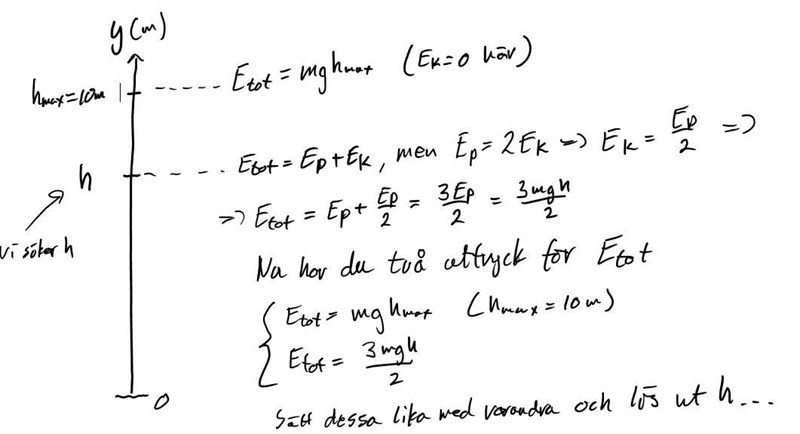 y(m)
hmax=10m
Etot = mghmax (Ek=0 här)
h
Etot = Ep + Ek, men Ep = 2Ek => Ek = Ep/2 =>
=> Etot = Ep + Ep/2 = 3Ep/2 = 3mgh/2
Vi söker h
Nu har du två uttryck för Etot
{ Etot = mghmax (hmax = 10m)
Etot = 3mgh/2
0
Sätt dessa lika med varandra och lös ut h...